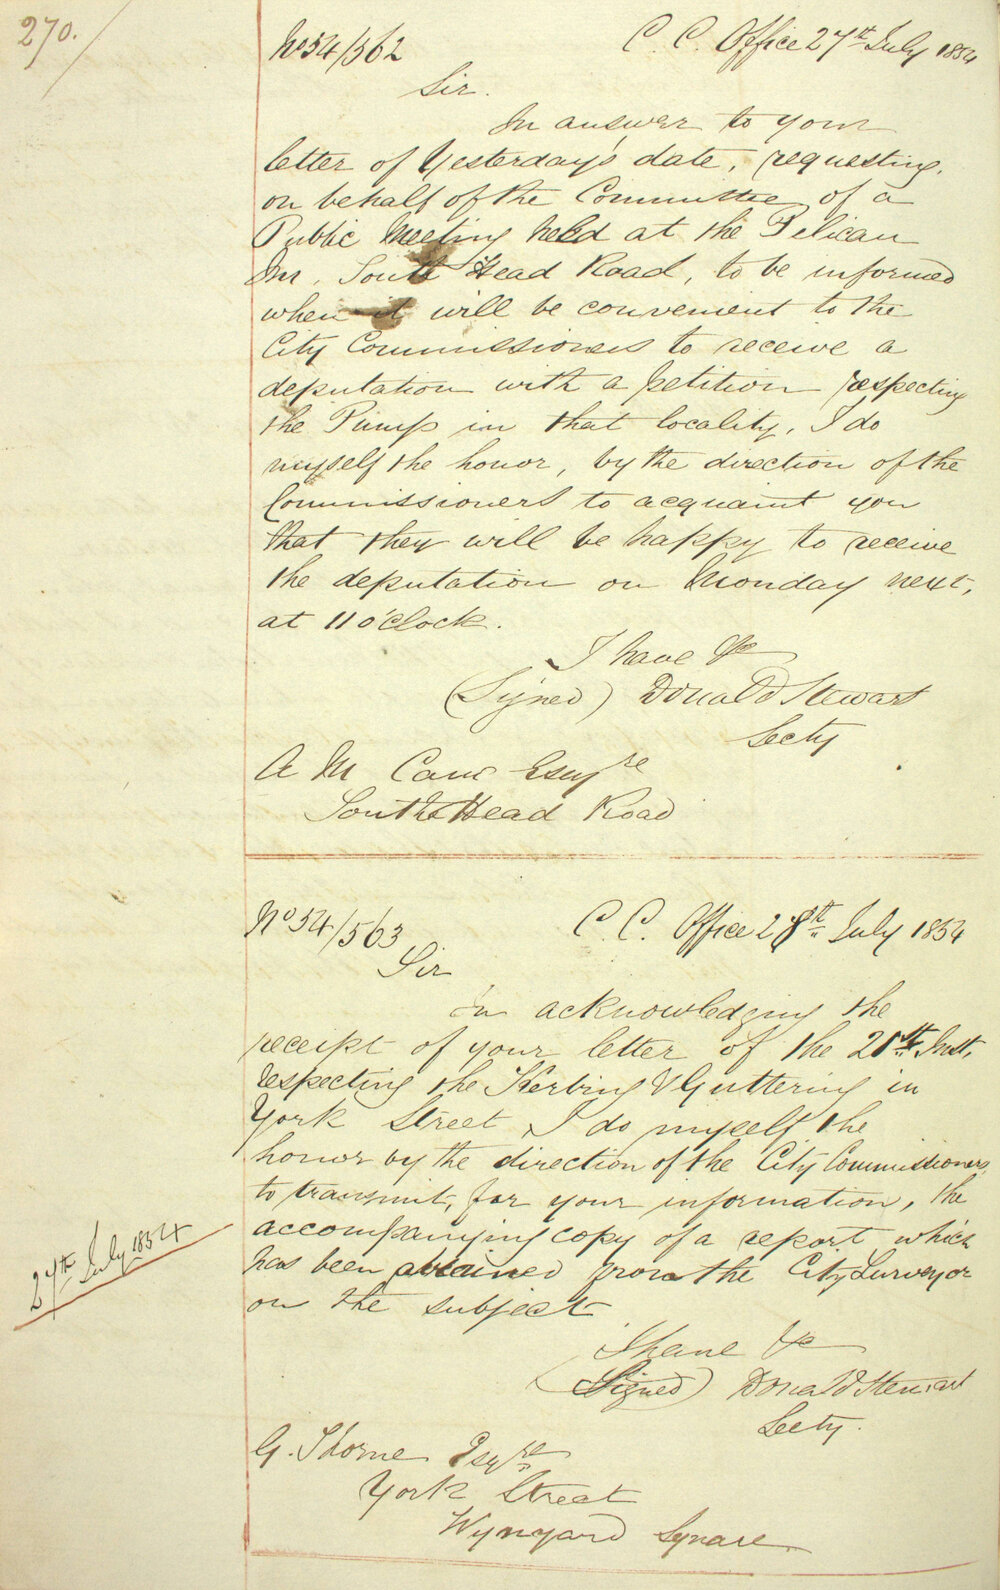 270.
No 54/562 C. C. Office 27th July 1854
Sir.
In answer to your
letter of Yesterday's date, requesting,
on behalf of the Committee of a
Public Meeting held at the Pelican
Inn, South Head Road, to be informed
when it will be convenient to the
City Commissioners to receive a
deputation with a petition respecting
the Pump in that locality, I do
myself the honor, by the direction of the
Commissioners to acquaint you
that they will be happy to receive
the deputation on Monday next,
at 11 o'Clock.
I have &c
(Signed) Donald Stewart
Secty
A M Esqre
South Head Road
No 54/563 C. C. Office 28th July 1854
Sir
In acknowledging the
receipt of your letter of the 21st Inst,
respecting the Kerbing & Guttering in
York Street, I do myself the
honor by the direction of the City Commissioners,
to transmit, for your information, the
accompanying copy of a report which
has been obtained from the City Surveyor
on the subject
27th July 1854
I have &c
(Signed) Donald Stewart
Secty.
G. Thorne Esqre
York Street
Wynyard Square